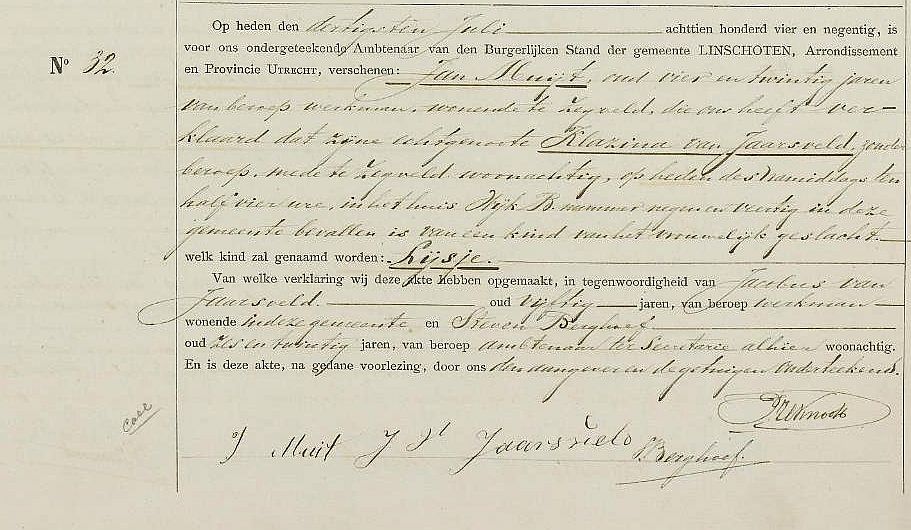 Op heden den dertigsten Juli achttien honderd vier en negentig, is
voor ons ondergeteekende Ambtenaar van den Burgerlijken Stand der gemeente LINSCHOTEN, Arrondissement
Nº 32.
en Provincie UTRECHT, verschenen: Jan Muijt, oud vier en twintig jaren
van beroep werkman, wonende te Zegveld, die ons heeft ver-
klaard dat zijne echtgenoote Klazina van Jaarsveld, zonder
beroep, mede te Zegveld woonachtig, op heden des namiddags ten
half vier ure, in het huis Wijk B. nummer negen en veertig in deze
gemeente bevallen is van een kind van het vrouwelijk geslacht.
welk kind zal genaamd worden: Lijsje.
Van welke verklaring wij deze akte hebben opgemaakt, in tegenwoordigheid van Jacobus van
Jaarsveld oud vijftig jaren, van beroep werkman
wonende in deze gemeente en Steven Berghoef
oud zes en twintig jaren, van beroep ambtenaar ter secretarie alhier woonachtig.
En is deze akte, na gedane voorlezing, door ons den aangever en de getuigen onderteekend.
J Muit J V Jaarsveld
S. Berghoef.